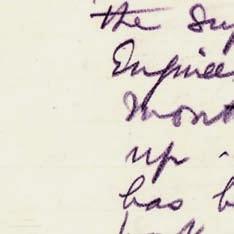 the Su
Enginee
Mont
up.
has b